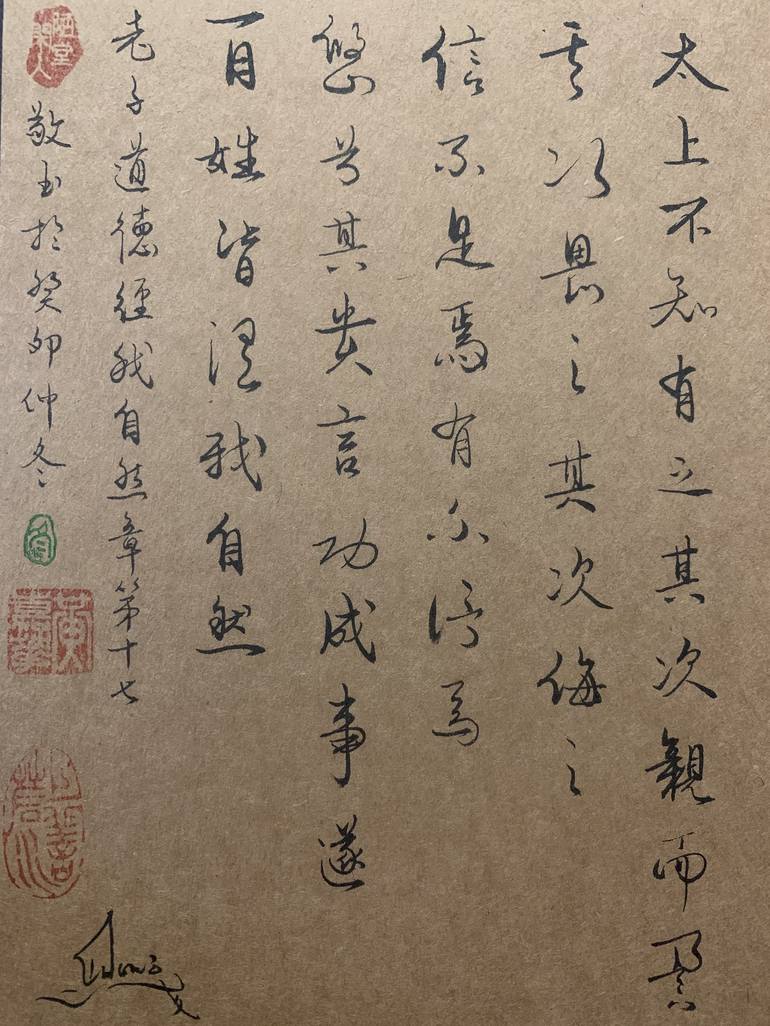 太上不知有之其次親而譽
其次畏之其次侮之
信不足焉有不信焉
悠兮其貴言功成事遂
百姓皆謂我自然
老子道德經我自然章第十七
陋室閑人
敬書於癸卯仲冬
上善若水